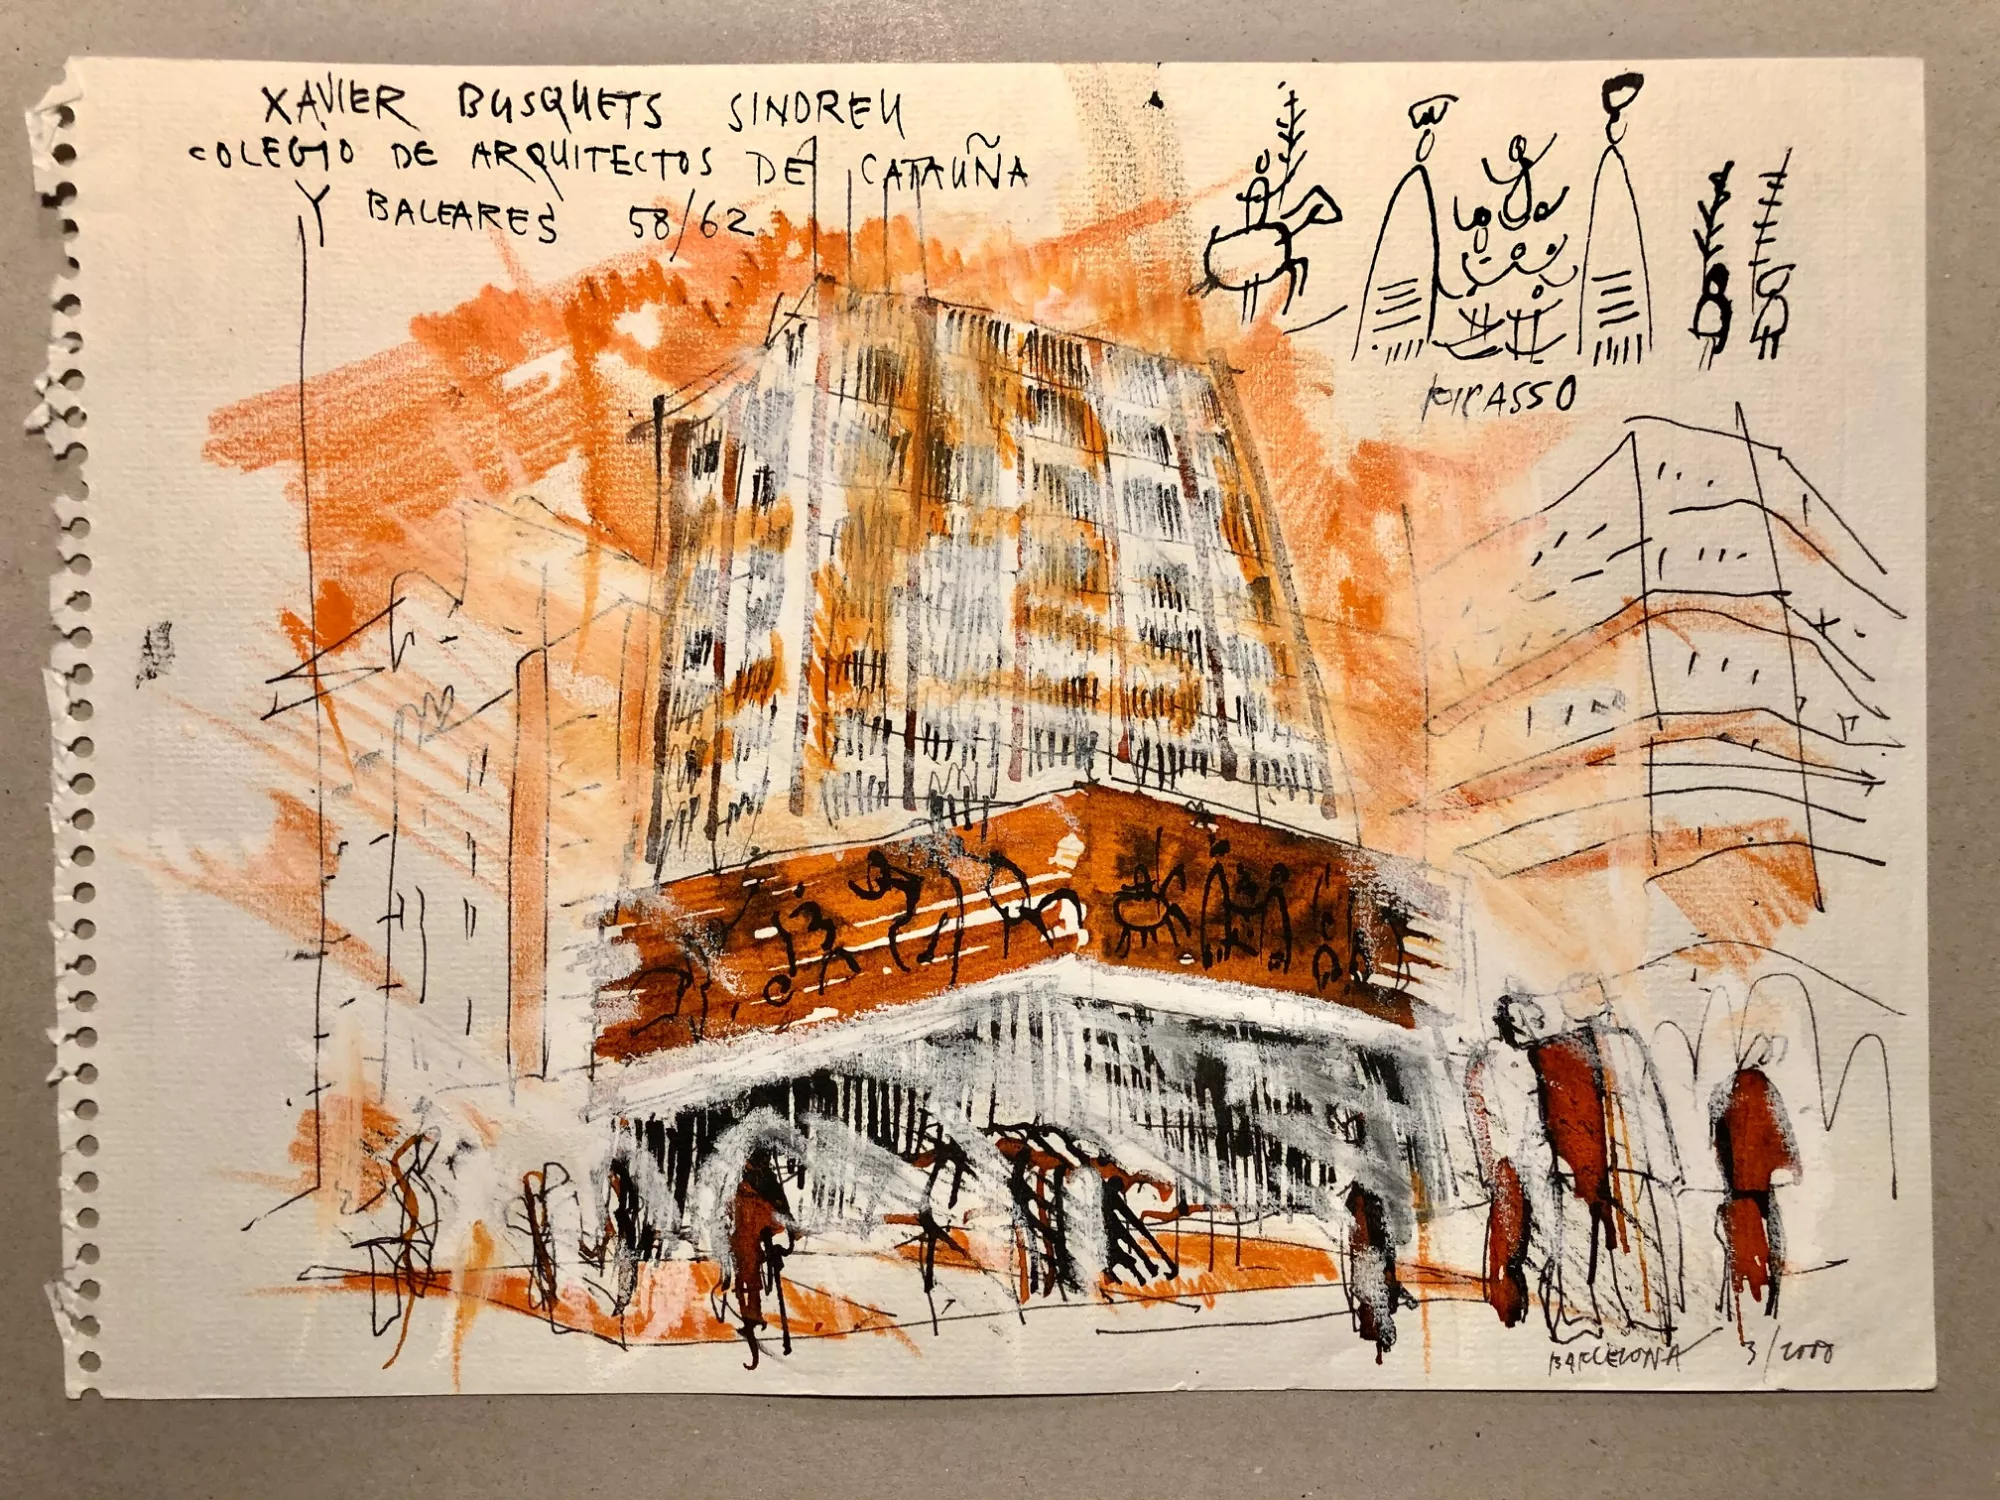 XAVIER BUSQUETS SINDREU
COLEGIO DE ARQUITECTOS DE CATAUÑA
Y BALEARES 58/62
PICASSO
BARCELONA 3/2000